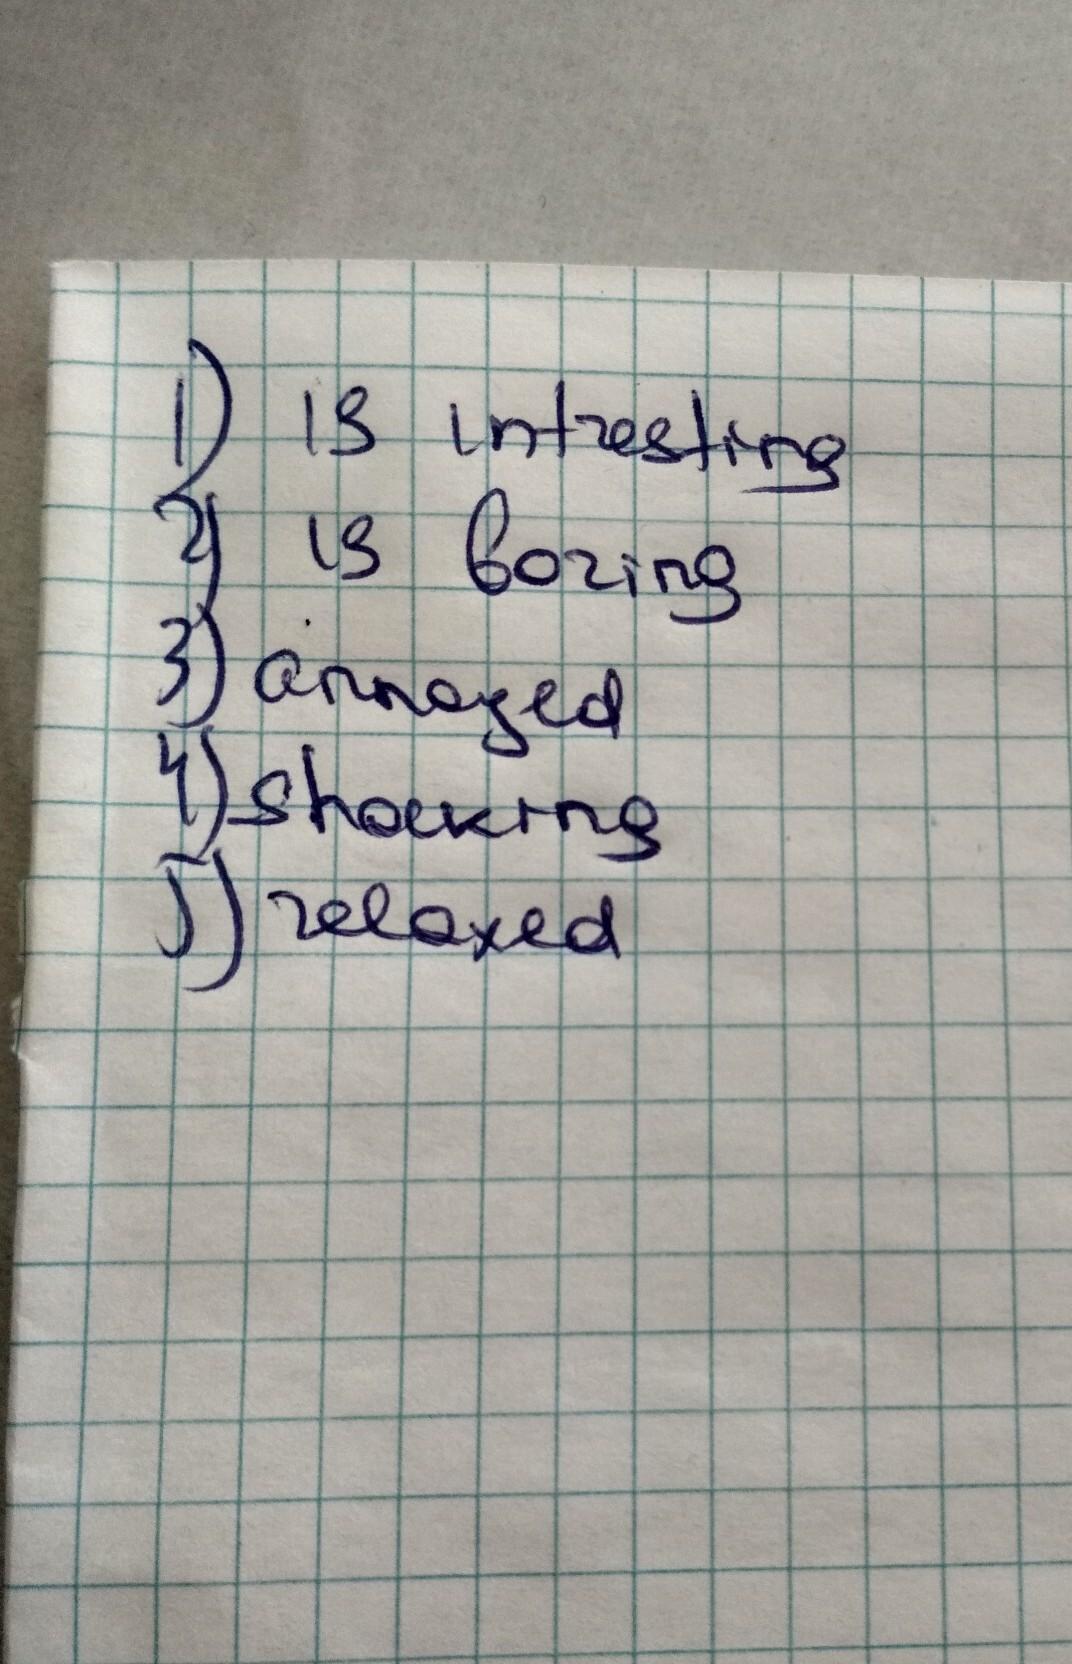 1) is intresting
2) is boring
3) annoyed
4) shocking
5) relaxed